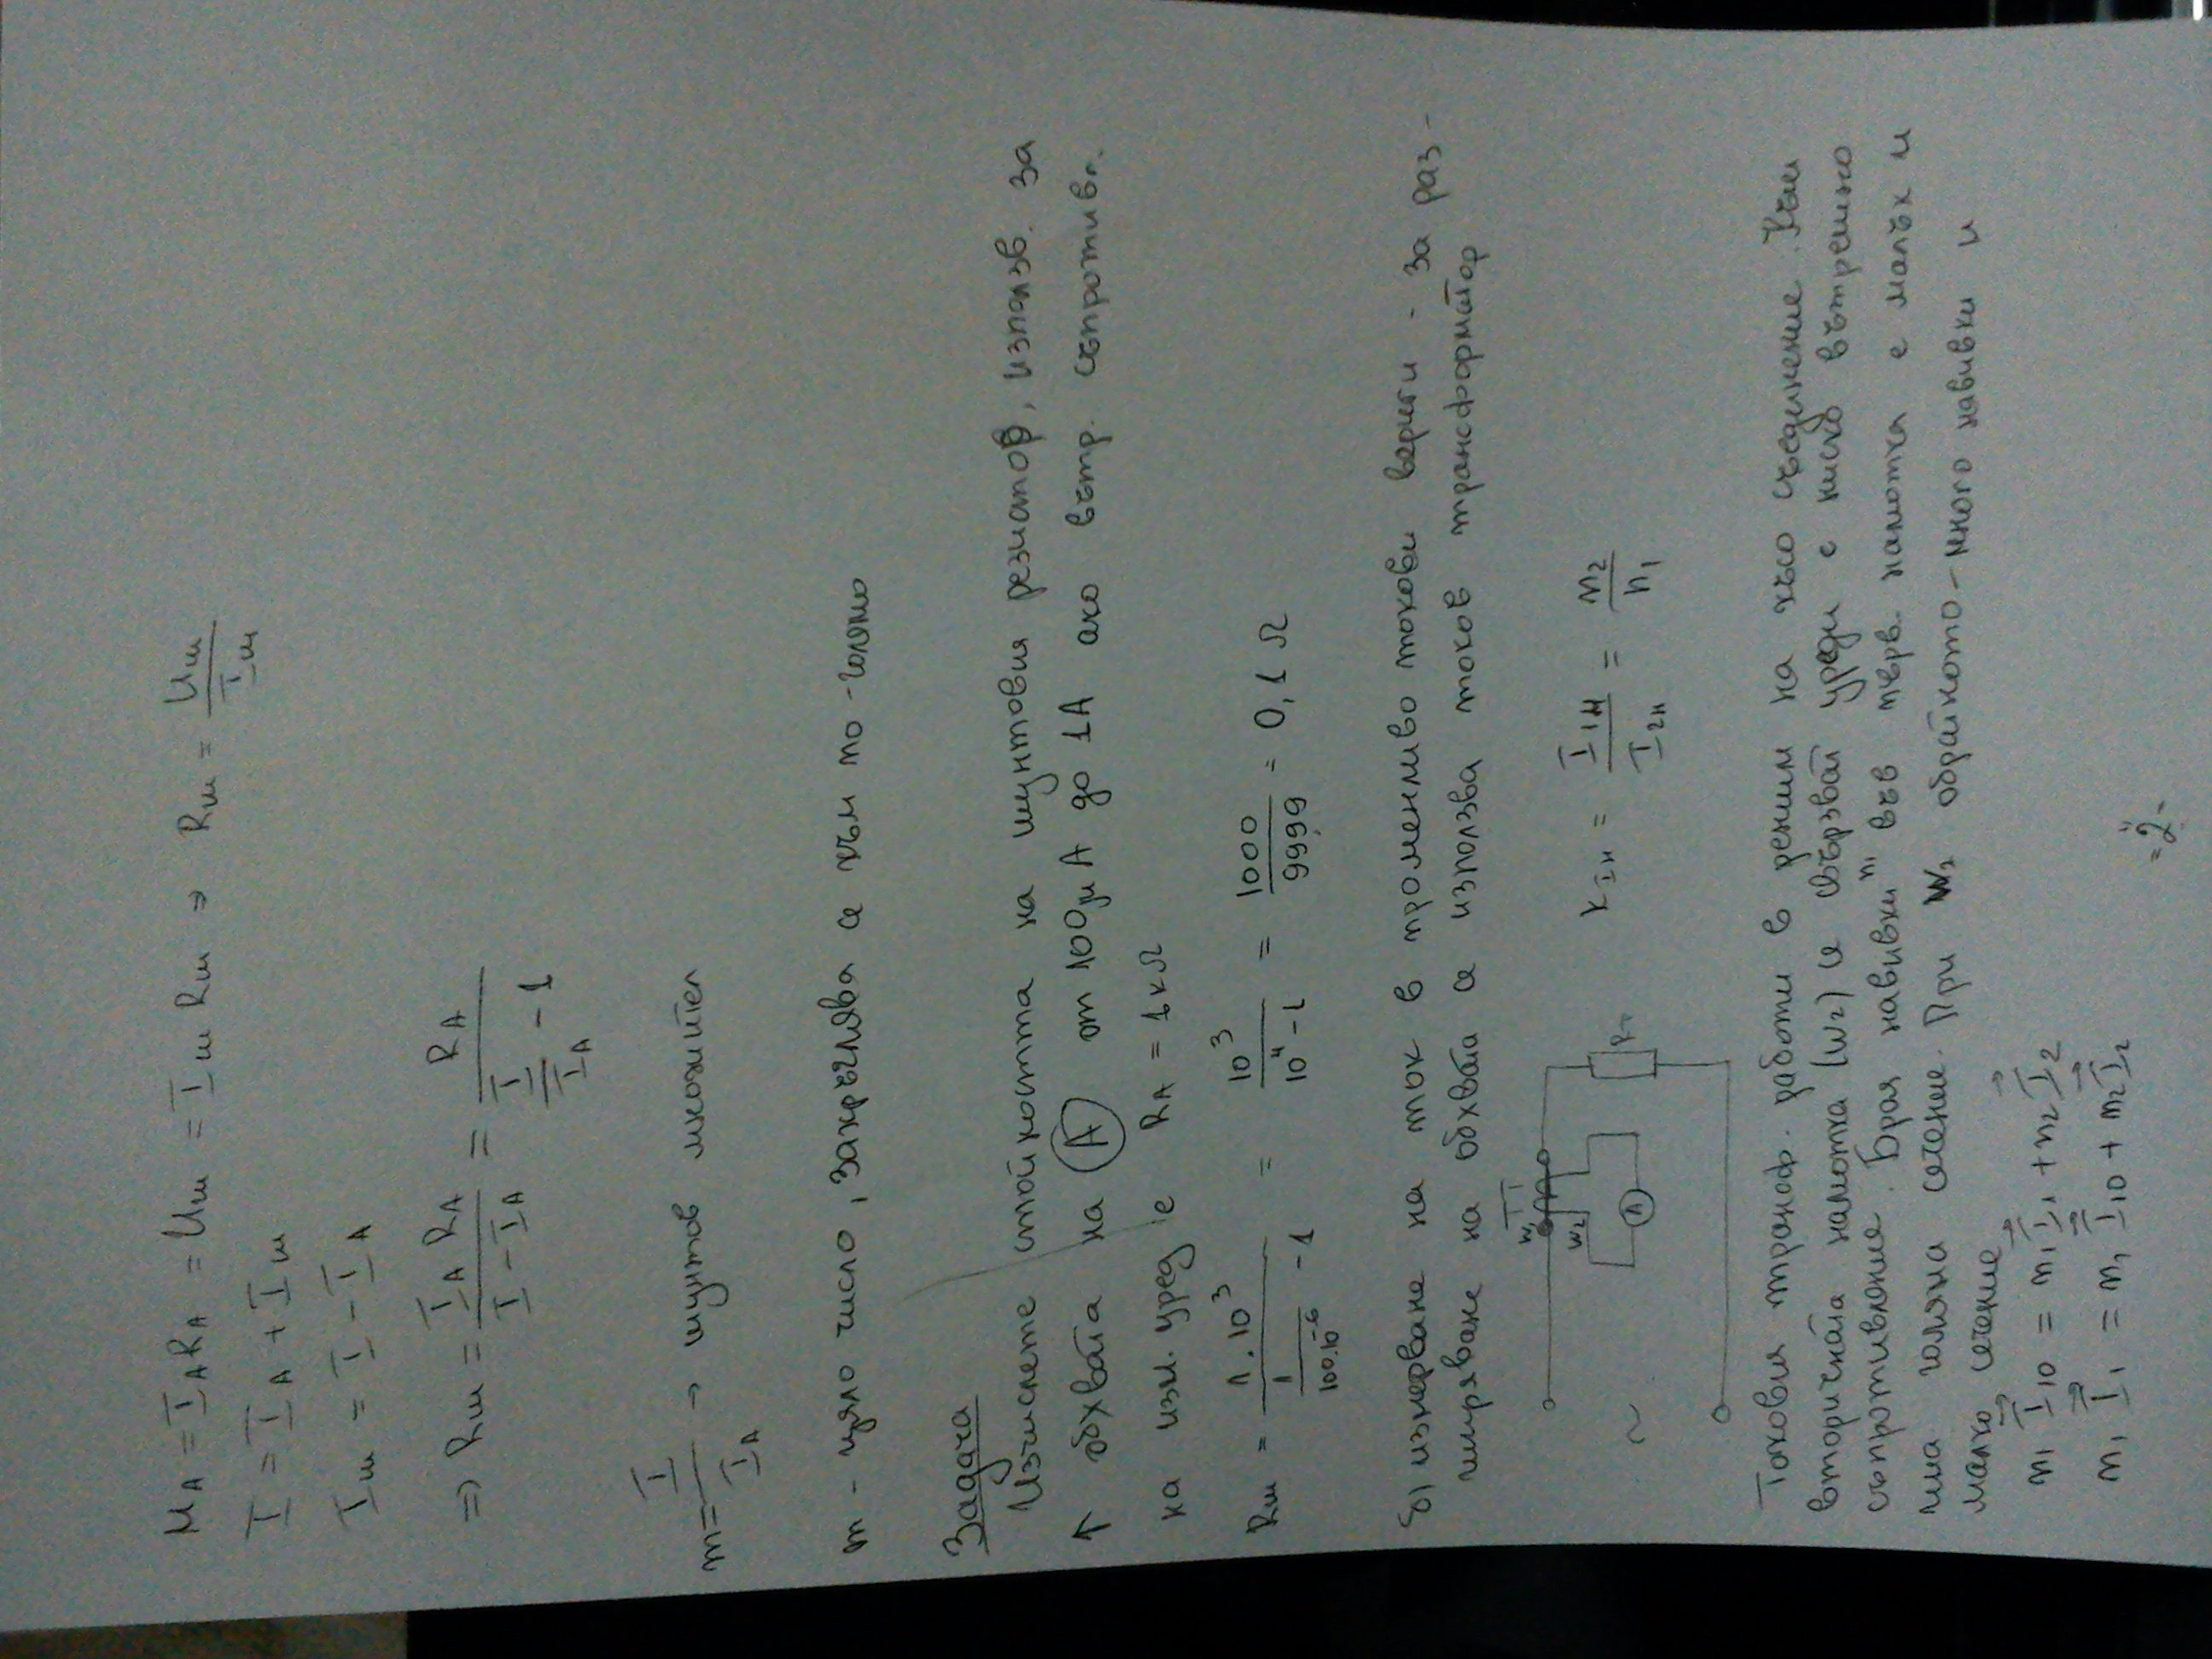 U_A = I_A R_A = U_ш = I_ш R_ш ⇒ R_ш = U_ш / I_ш
I = I_A + I_ш
I_ш = I - I_A
⇒ R_ш = I_A R_A / (I - I_A) = R_A / (I/I_A - 1)
m = I / I_A → шунтов множител
m - цяло число, закръглява се към по-голямо
Задача
Изчислете стойността на шунтовия резистор, използв. за
↑ обхвата на (A) от 100μA до 1A ако вътр. съпротивл.
на изм. уред е R_A = 1kΩ
R_ш = 1.10³ / (1/100.10⁻⁶ - 1) = 10³ / (10⁴ - 1) = 1000 / 9999 = 0,1 Ω
б) измерване на ток в променливо токови вериги - за раз-
ширяване на обхвата се използва токов трансформатор
W₁ TT
W₂
A
~
k_Iн = I_1н / I_2н = n₂ / n₁
Токовия трансф. работи в режим на късо съединение. Към
вторичната намотка (w₂) се свързват уреди с ниско вътрешно
съпротивление. Броя навивки "n₁" във перв. намотка е малък и
има голяма сечение. При W₂ обратното - много навивки и
малко сечение
n₁ I₁₀ = n₁ I₁ + n₂ I₂
n₁ I₁ = n₁ I₁₀ + n₂ I₂
=2=